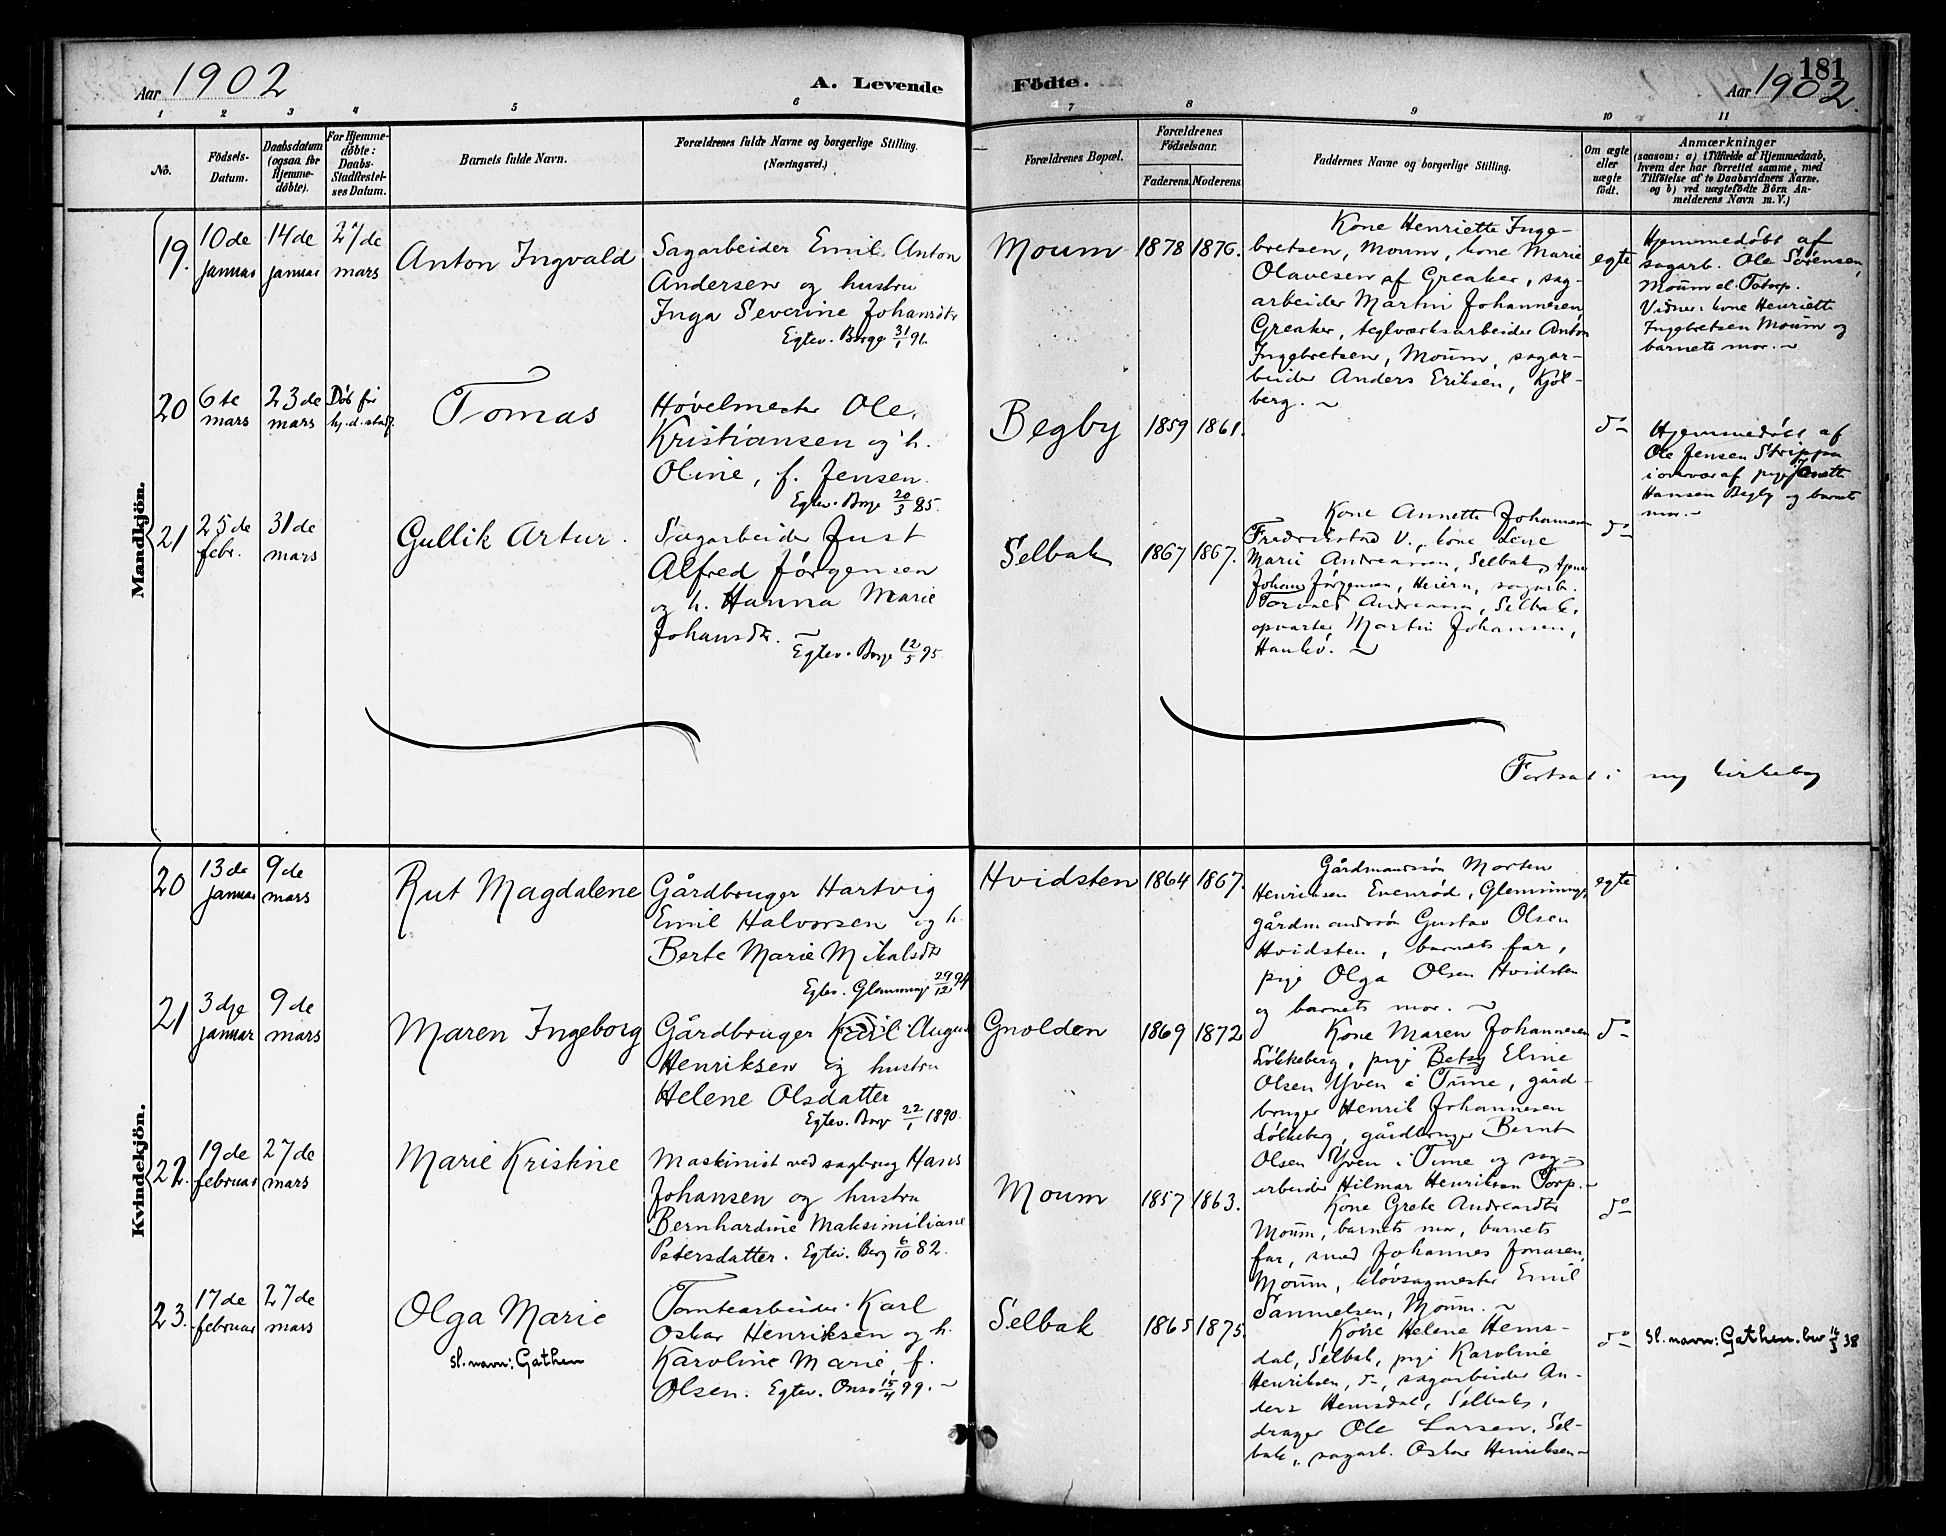 Aar 1902
A. Levende
Födte.
181
Aar 1902
1 2 3 4 5 6 7 8 9 10 11
No.
Födsels-
Datum.
Daabsdatum
(ogsaa for
Hjemme-
döbte).
For Hjemme-
döbte:
Daabs-
Stadfæstel-
ses Datum.
Barnets fulde Navn.
Forældrenes fulde Navne og borgerlige Stilling.
(Næringsvei.)
Forældrenes Bopæl.
Forældrenes
Födselsaar.
Faderens. Moderens.
Faddernes Navne og borgerlige Stilling.
Om ægte
eller
uægte
födt.
Anmærkninger
(saasom: a) i Tilfælde af Hjemmedaab,
hvem der har forrettet samme, med
Tilföielse af to Daabsvidners Navne,
og b) ved uægtefödte Börn An-
melderens Navn m. V.)
Mandkjön.
19.
10de
januar
14de
januar
27de
mars
Anton Ingvald
Sagarbeider Emil Anton
Andersen og hustru
Inga Severine Johansdtr
Egtev. Borge 31/1 96.
Moum
1878 1876.
Kone Henriette Inge-
bretsen, Moum, kone Marie
Olavesen af Greaker, sag-
arbeider Martin Johannesen
Greaker, teglværksarbeider Anton
Ingebretsen, Moum, sagar-
beider Anders Eriksen, Kjöl-
berg.
egte
Hjemmedöbt af
sagarb. Ole Sørensen,
Moum el. Totorp.
Vidner: kone Henriette
Ingebretsen Moum og
barnets mor.
20
6te
mars
23de
mars
Död för
hj.d.stadf.
Tomas
Høvelmester Ole
Kristiansen og h.
Oline, f. Jensen.
Egtev. Borge 20/3 85.
Begby
1859 1861.
do
Hjemmedöbt af
Ole Jensen Strippa
i onvær af pige
Hansen Begby og barnets
mor.
21
25de
febr.
31de
mars
Gullik Artur.
Sagarbeider Just
Alfred Jørgensen
og h. Hanna Marie
Johansdtr.
Egtev. Borge 12/5 95.
Selbak
1867 1867.
Kone Annette Johannesen
Fredrikstad V., kone Lene
Marie Andreassen, Selbak,
Johans Jørgensen, Heiern, sagarb.
Torvald Andreassen, Selbak,
opvarter Martin Johansen,
Hankø.
do
Fortsat i ny kirkebog
Kvindekjön.
20
13de
januar
9de
mars
Rut Magdalene
Gårdbruger Hartvig
Emil Halvorsen og h.
Berte Marie Mikalsdtr
Egtev. Glemminge 29/12 94
Hvidsten
1864 1867.
Gårdmandssøn Morten
Henriksen Evenrød, Glemminge,
gårdmandssøn Gustav Olsen
Hvidsten, barnets far,
pige Olga Olsen Hvidsten
og barnets mor.
egte
21
3dje
januar
9de
mars
Maren Ingeborg
Gårdbruger Karl August
Henriksen og hustru
Helene Olsdatter
Egtev. Borge 22/1 1890.
Gnolden
1869 1872
Kone Maren Johannesen
Løkkeberg, pige Betsy Eline
Olsen Yven i Tune, gård-
bruger Henrik Johannesen
Løkkeberg, gårdbruger Bernt
Olsen Yven i Tune og sag-
arbeider Hilmar Henriksen Torp.
do
22.
19de
februar
27de
mars
Marie Kristine
Maskinist ved sagbrug Hans
Johansen og hustru
Bernhardine Maksimiliane
Petersdatter. Egtev. Berg 6/10 82.
Moum
1857 1863.
Kone Grete Andreasdtr
Moum, barnets mor, barnets
far, smed Johannes Jonasen,
Moum, kløvsagmester Emil
Samuelsen, Moum.
do
23.
17de
februar
27de
mars
Olga Marie
sl. navn: Gathen
Tomtearbeider Karl
Oskar Henriksen og h.
Karoline Marie, f.
Olsen. Egtev. Onsø 15/4 99.
Selbak
1865 1875.
Kone Helene Hems-
dal, Selbak, pige Karoline
Henriksen, do, sagarbeider An-
ders Hemsdal, Selbak,
drager Ole Larsen, Sel-
bak, sagarb. Oskar Henriksen
do
sl. navn: Gathen. bev 16/3 38